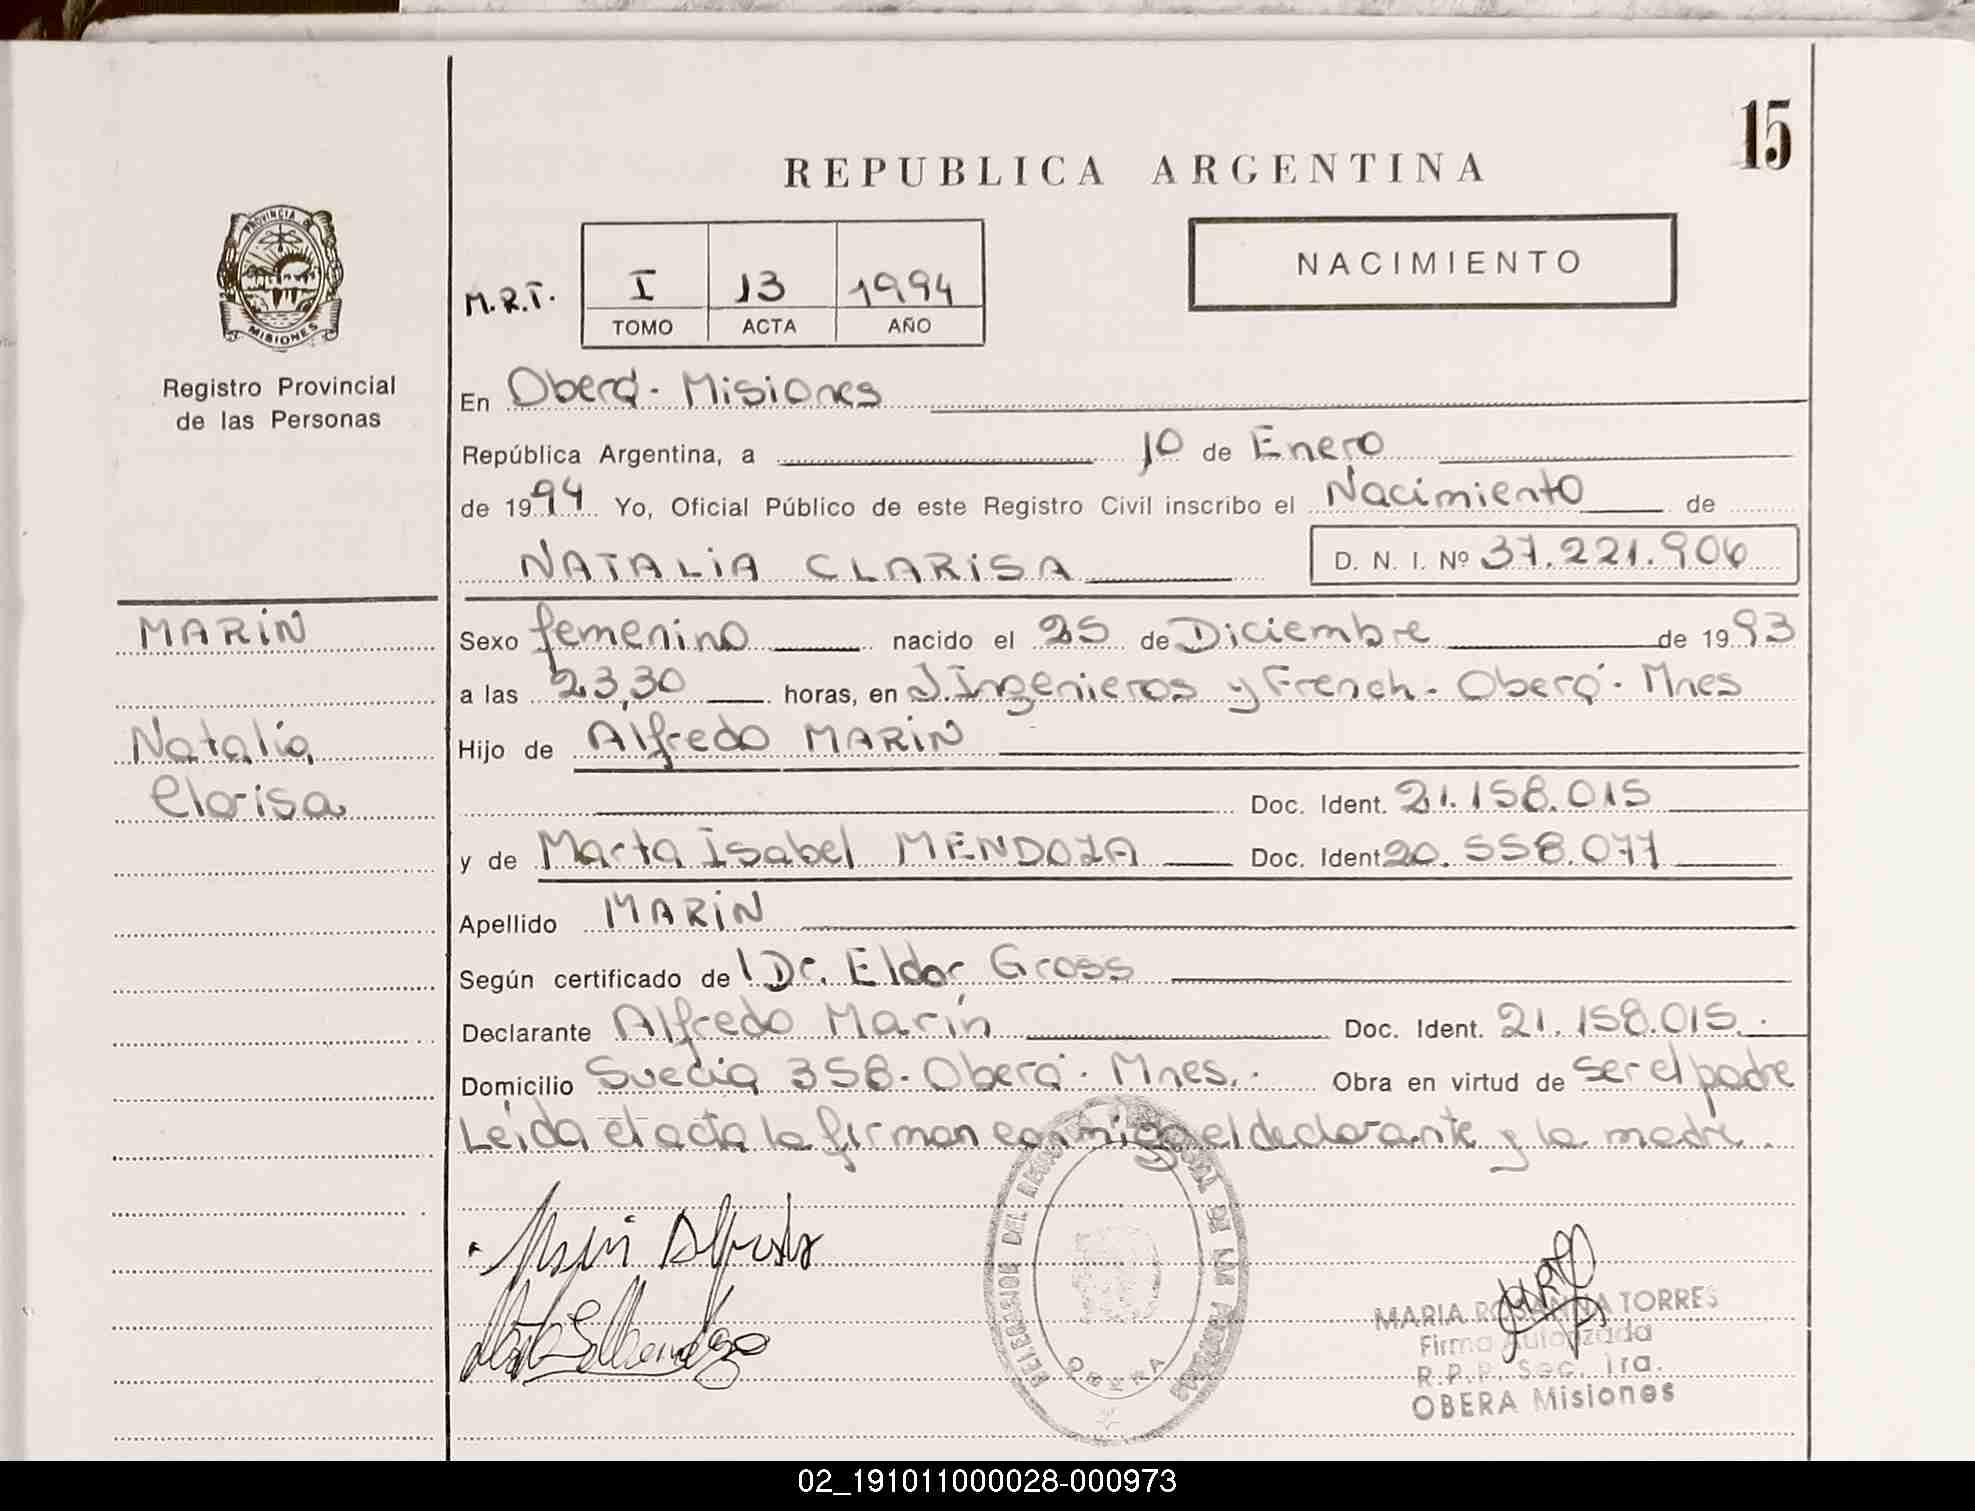 15
REPUBLICA ARGENTINA
PROVINCIA DE
MISIONES
Registro Provincial
de las Personas
M.R.T. I 13 1994
TOMO ACTA AÑO
NACIMIENTO
En Oberá - Misiones
República Argentina, a 10 de Enero
de 1994 Yo, Oficial Público de este Registro Civil inscribo el Nacimiento de
NATALIA CLARISA D. N. I. Nº 37.221.906
MARIN
Natalia
Clarisa
Sexo femenino nacido el 25 de Diciembre de 1993
a las 23,30 horas, en J. Ingenieros y French - Oberá - Mnes
Hijo de Alfredo MARIN
Doc. Ident. 21.158.015
y de Marta Isabel MENDOZA Doc. Ident 20.558.077
Apellido MARIN
Según certificado de Dr. Eldor Gross
Declarante Alfredo Marín Doc. Ident. 21.158.015.-
Domicilio Suecia 358 - Oberá - Mnes.- Obra en virtud de ser el padre
Leída el acta la firman conmigo el declarante y la madre.
Marin Alfredo
DELEGACION DEL REGISTRO PROVINCIAL DE LAS PERSONAS
OBERA
MARIA ROSANNA TORRES
Firma Autorizada
R.P.P. Sec. 1ra.
OBERA Misiones
02_191011000028-000973